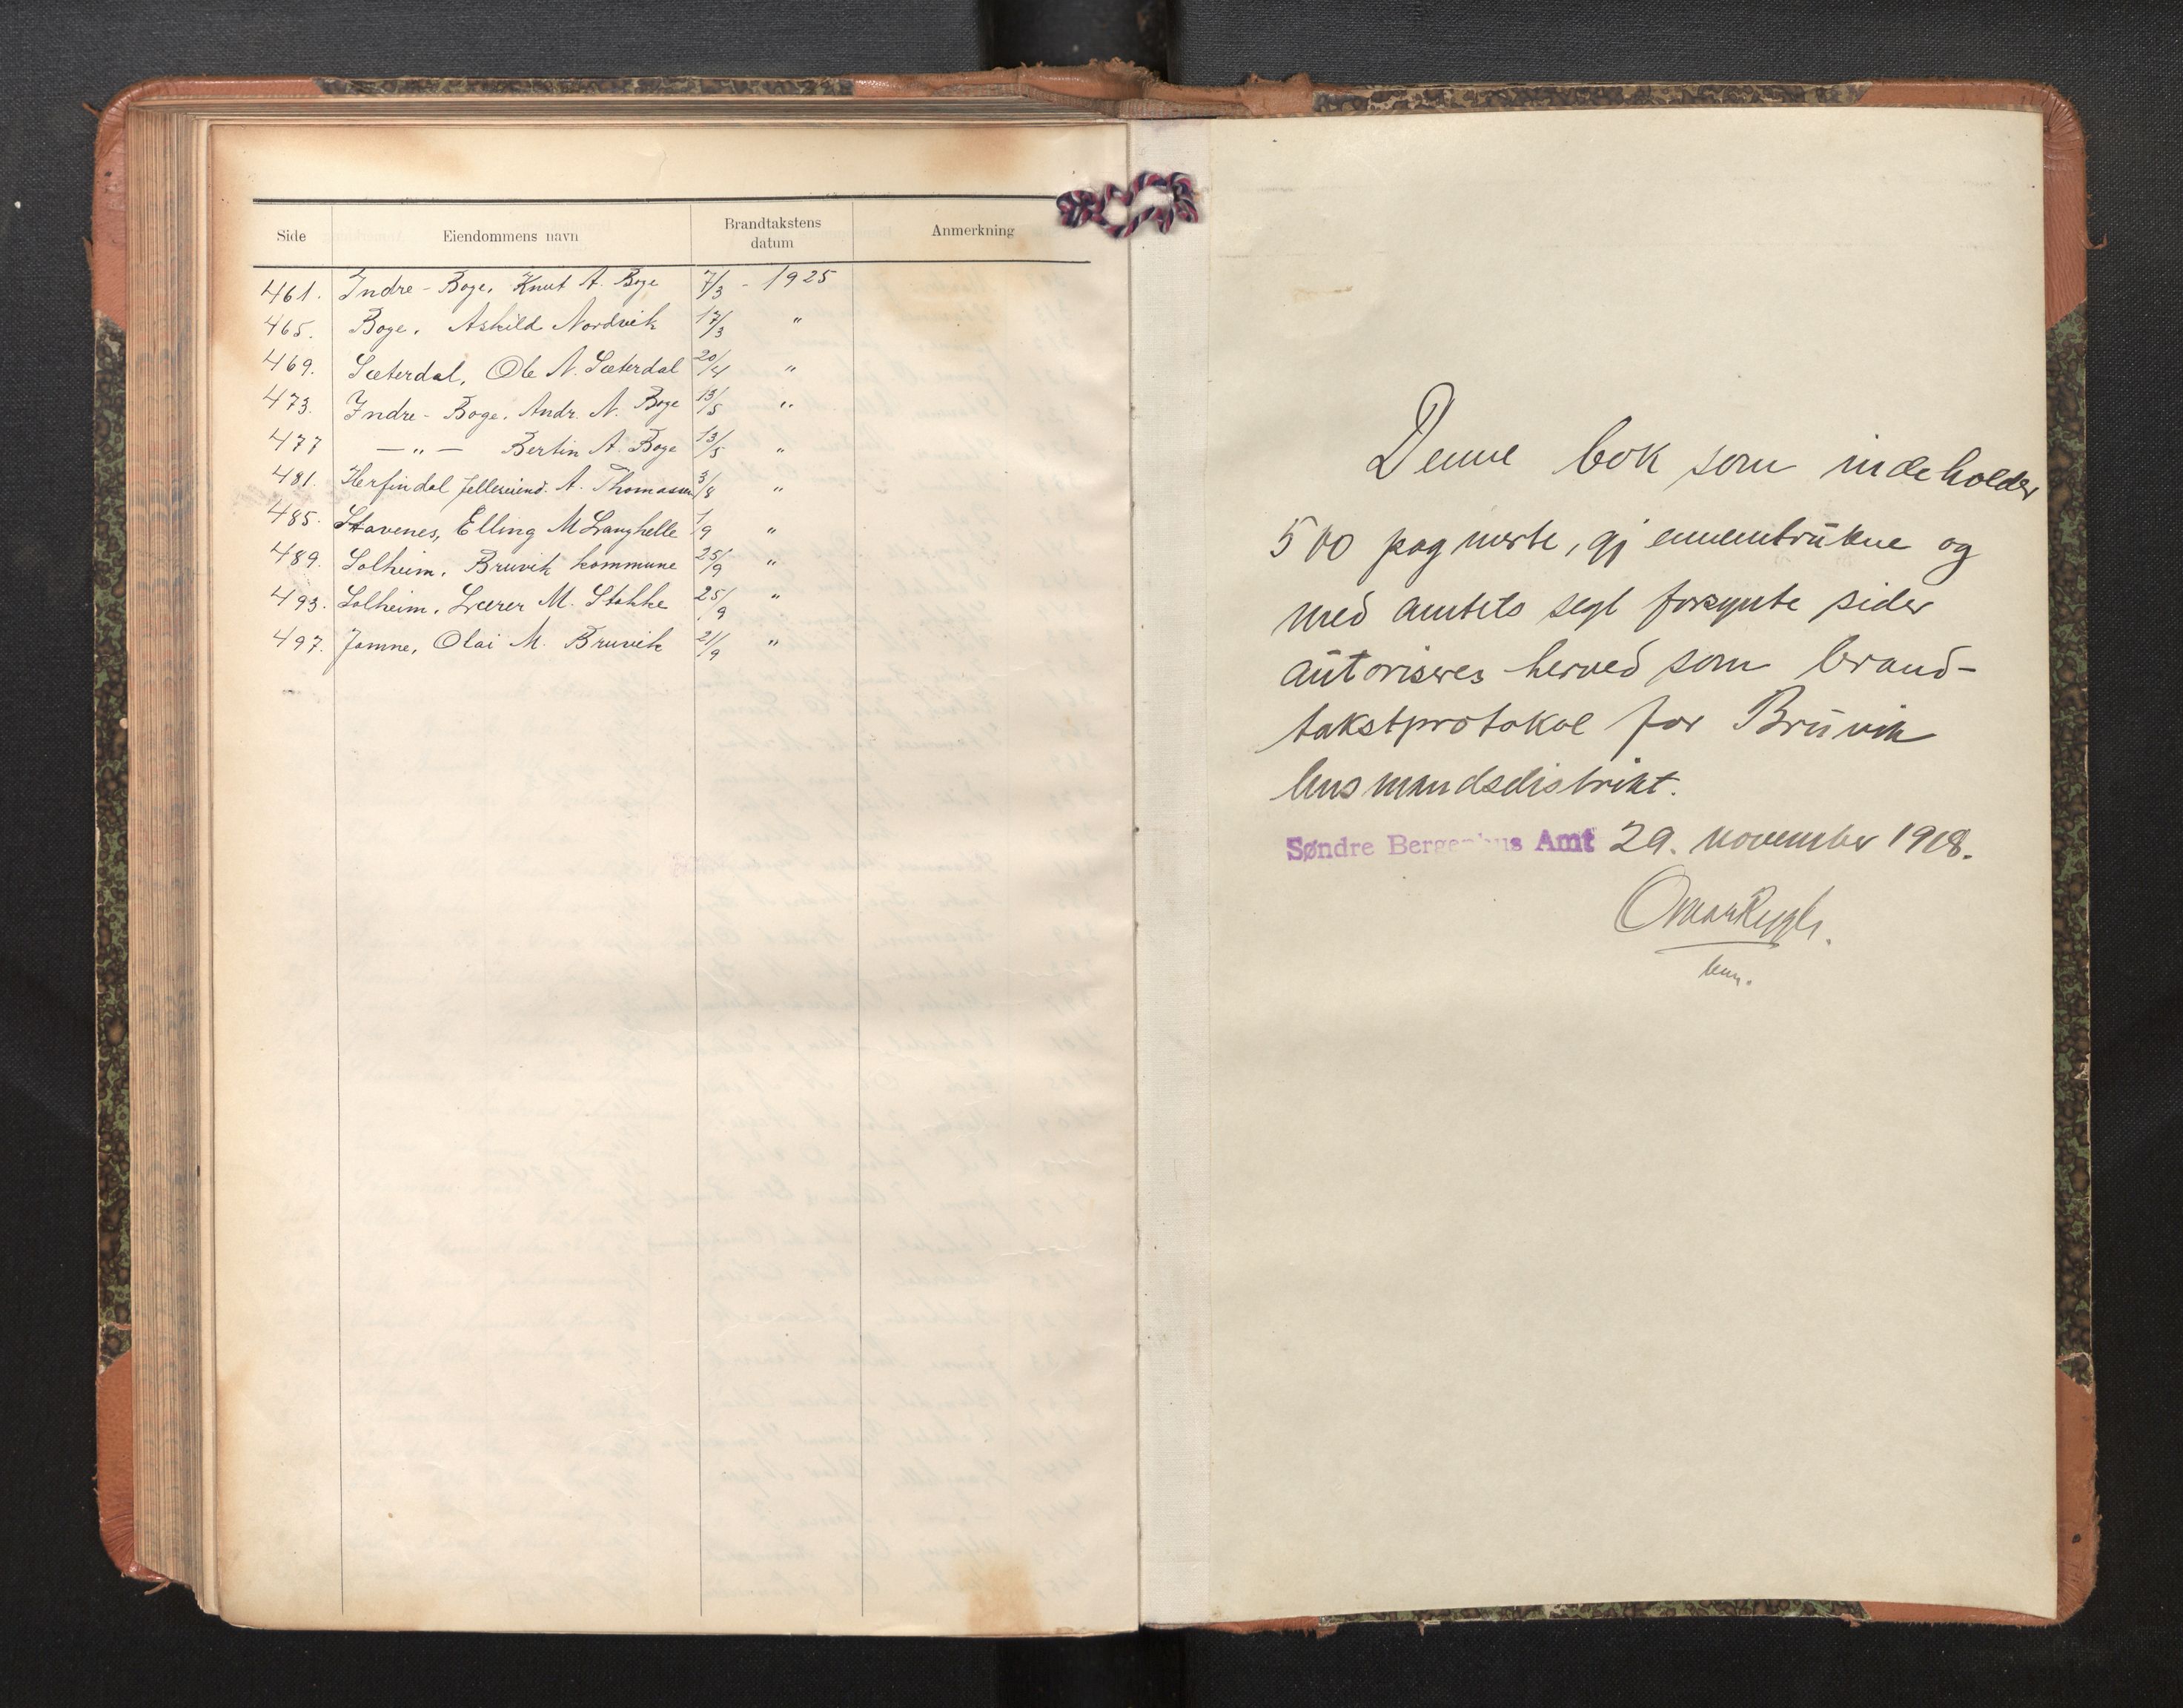 Side Eiendommens navn Brandtakstens datum Anmerkning
461. Indre - Boge, Knut A. Boge 7/3 - 1925
465. Boge. Askild Nordvik 17/3 "
469. Sæterdal, Ole N. Sæterdal 20/4 "
473. Indre - Boge. Andr. N. Boge 13/5 "
477 — " — Bertin A. Boge 13/5 "
481. Herfindal felleseiend. A. Thomassen 3/8 "
485. Stavenes, Elling M Langhelle 1/9 "
489. Solheim. Bruvik kommune 25/9 "
493. Solheim. Lærer M. Stokke 25/9 "
497. Jamne, Olai M. Bruvik 21/9 "
Denne bok som indeholder
500 paginerte, gjennemtrukne og
med amtets segl forsynte sider
autoriseres herved som brand-
takstprotokol for Bruvik
lensmandsdistrikt.
Søndre Bergenhus Amt 29. november 1918.